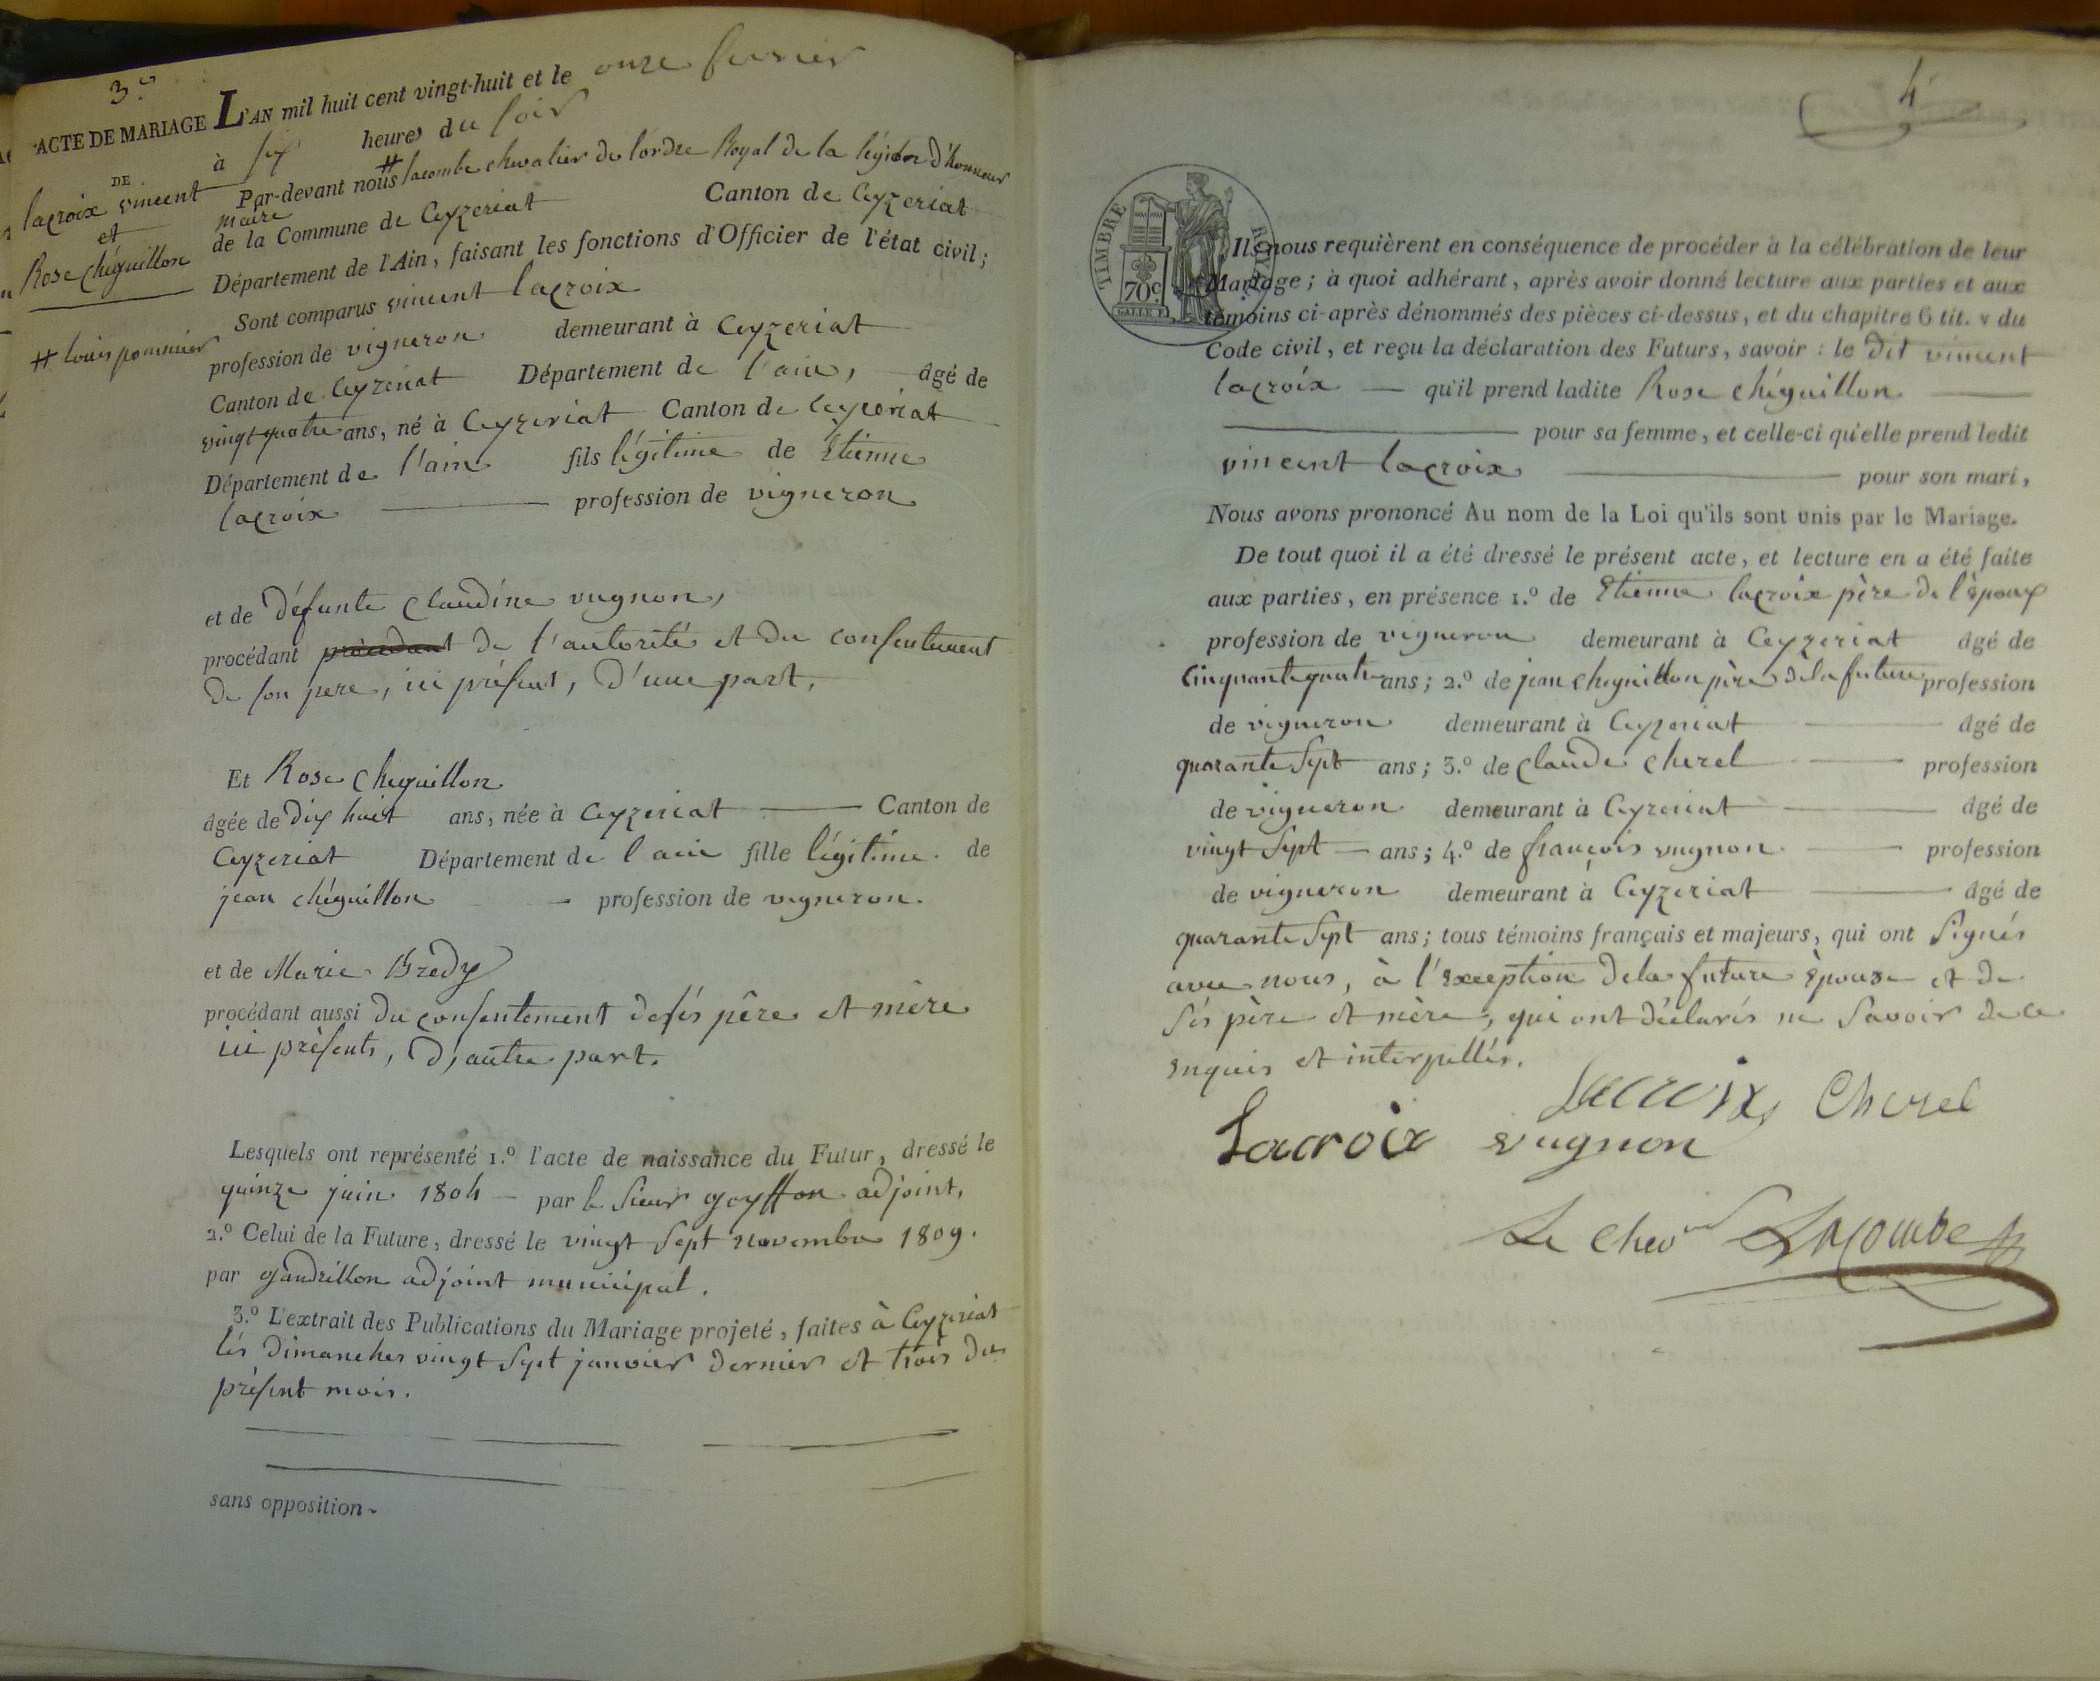 3.e
ACTE DE MARIAGE
DE
lacroix vincent
et
Rose Chéguillon
# louis pommier
L'AN mil huit cent vingt-huit et le onze fevrier
à six heures du soir
Par-devant nous # lacombe chevalier de l'ordre Royal de la légion d'honneur
maire
de la Commune de Ceyzeriat Canton de Ceyzeriat
Département de l'Ain, faisant les fonctions d'Officier de l'état civil;
Sont comparus vincent lacroix
profession de vigneron demeurant à Ceyzeriat
Canton de Ceyzeriat Département de l'ain, âgé de
vingt quatre ans, né à Ceyzeriat Canton de Ceyzeriat
Département de l'ain fils légitime de Etienne
lacroix profession de vigneron
et de défunte Claudine vugnon,
procédant procédant de l'autorité et du consentement
de son pere, ici présent, d'une part,
Et Rose Cheguillon
âgée de dix huit ans, née à Ceyzeriat Canton de
Ceyzeriat Département de l'ain fille légitime de
jean chéguillon profession de vigneron.
et de Marie Bredy
procédant aussi du consentement de sés père et mère
ici présents, d'autre part.
Lesquels ont représenté 1.º l'acte de naissance du Futur, dressé le
quinze juin 1804 par le sieur goyffon adjoint,
2.º Celui de la Future, dressé le vingt sept novembre 1809.
par gandrillon adjoint municipal.
3.º L'extrait des Publications du Mariage projeté, faites à Ceyzeriat
lés dimanches vingt sept janvier dernier et trois du
présent mois.
sans opposition
4
TIMBRE ROYAL
70c
Ils nous requièrent en conséquence de procéder à la célébration de leur
Mariage; à quoi adhérant, après avoir donné lecture aux parties et aux
témoins ci-après dénommés des pièces ci-dessus, et du chapitre 6 tit. v du
Code civil, et reçu la déclaration des Futurs, savoir : le dit vincent
lacroix qu'il prend ladite Rose chéguillon
pour sa femme, et celle-ci qu'elle prend ledit
vincent lacroix pour son mari,
Nous avons prononcé Au nom de la Loi qu'ils sont unis par le Mariage.
De tout quoi il a été dressé le présent acte, et lecture en a été faite
aux parties, en présence 1.º de Etienne lacroix père de l'époux
profession de vigneron demeurant à Ceyzeriat âgé de
Cinquante quatre ans; 2.º de jean cheguillon père de la future profession
de vigneron demeurant à Ceyzeriat âgé de
quarante sept ans; 3.º de Claude Cherel profession
de vigneron demeurant à Ceyzeriat âgé de
vingt sept ans; 4.º de françois vugnon profession
de vigneron demeurant à Ceyzeriat âgé de
quarante sept ans; tous témoins français et majeurs, qui ont signés
avec nous, à l'exception de la future épouse et de
sés père et mère, qui ont déclarés ne savoir de ce
enquis et interpellés.
Lacroix Cherel
Lacroix vugnon
Le Chev Lacombe